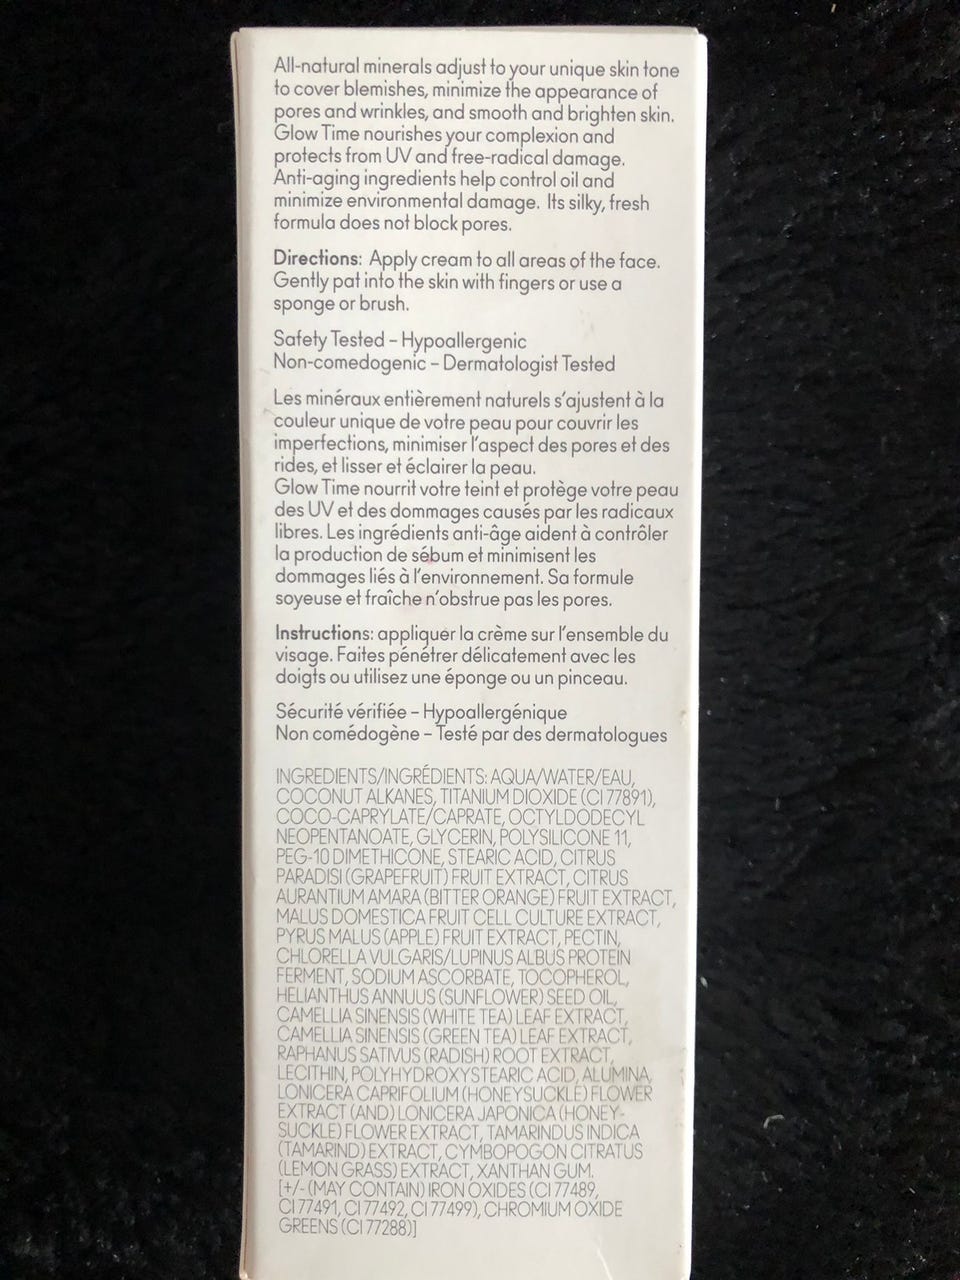 All-natural minerals adjust to your unique skin tone
to cover blemishes, minimize the appearance of
pores and wrinkles, and smooth and brighten skin.
Glow Time nourishes your complexion and
protects from UV and free-radical damage.
Anti-aging ingredients help control oil and
minimize environmental damage. Its silky, fresh
formula does not block pores.
Directions: Apply cream to all areas of the face.
Gently pat into the skin with fingers or use a
sponge or brush.
Safety Tested – Hypoallergenic
Non-comedogenic – Dermatologist Tested
Les minéraux entièrement naturels s'ajustent à la
couleur unique de votre peau pour couvrir les
imperfections, minimiser l'aspect des pores et des
rides, et lisser et éclairer la peau.
Glow Time nourrit votre teint et protège votre peau
des UV et des dommages causés par les radicaux
libres. Les ingrédients anti-âge aident à contrôler
la production de sébum et minimisent les
dommages liés à l'environnement. Sa formule
soyeuse et fraîche n'obstrue pas les pores.
Instructions: appliquer la crème sur l'ensemble du
visage. Faites pénétrer délicatement avec les
doigts ou utilisez une éponge ou un pinceau.
Sécurité vérifiée – Hypoallergénique
Non comédogène – Testé par des dermatologues
INGREDIENTS/INGRÉDIENTS: AQUA/WATER/EAU,
COCONUT ALKANES, TITANIUM DIOXIDE (CI 77891),
COCO-CAPRYLATE/CAPRATE, OCTYLDODECYL
NEOPENTANOATE, GLYCERIN, POLYSILICONE 11,
PEG-10 DIMETHICONE, STEARIC ACID, CITRUS
PARADISI (GRAPEFRUIT) FRUIT EXTRACT, CITRUS
AURANTIUM AMARA (BITTER ORANGE) FRUIT EXTRACT,
MALUS DOMESTICA FRUIT CELL CULTURE EXTRACT,
PYRUS MALUS (APPLE) FRUIT EXTRACT, PECTIN,
CHLORELLA VULGARIS/LUPINUS ALBUS PROTEIN
FERMENT, SODIUM ASCORBATE, TOCOPHEROL,
HELIANTHUS ANNUUS (SUNFLOWER) SEED OIL,
CAMELLIA SINENSIS (WHITE TEA) LEAF EXTRACT,
CAMELLIA SINENSIS (GREEN TEA) LEAF EXTRACT,
RAPHANUS SATIVUS (RADISH) ROOT EXTRACT,
LECITHIN, POLYHYDROXYSTEARIC ACID, ALUMINA,
LONICERA CAPRIFOLIUM (HONEYSUCKLE) FLOWER
EXTRACT (AND) LONICERA JAPONICA (HONEY-
SUCKLE) FLOWER EXTRACT, TAMARINDUS INDICA
(TAMARIND) EXTRACT, CYMBOPOGON CITRATUS
(LEMON GRASS) EXTRACT, XANTHAN GUM.
[+/- (MAY CONTAIN) IRON OXIDES (CI 77489,
CI 77491, CI 77492, CI 77499), CHROMIUM OXIDE
GREENS (CI 77288)]